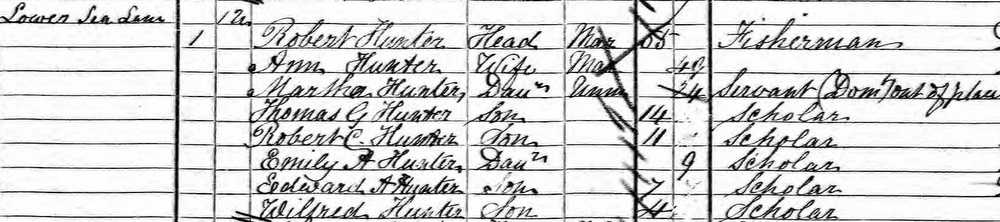 Lower Sea Lane 12
1 Robert Hunter Head Mar 55 Fisherman
Ann Hunter Wife Mar 49
Martha Hunter Daur Unm 24 Servant (Dom) out of place
Thomas G Hunter Son 14 Scholar
Robert C. Hunter Son 11 Scholar
Emily A Hunter Daur 9 Scholar
Edward A Hunter Son 7 Scholar
Wilfred Hunter Son 4 Scholar